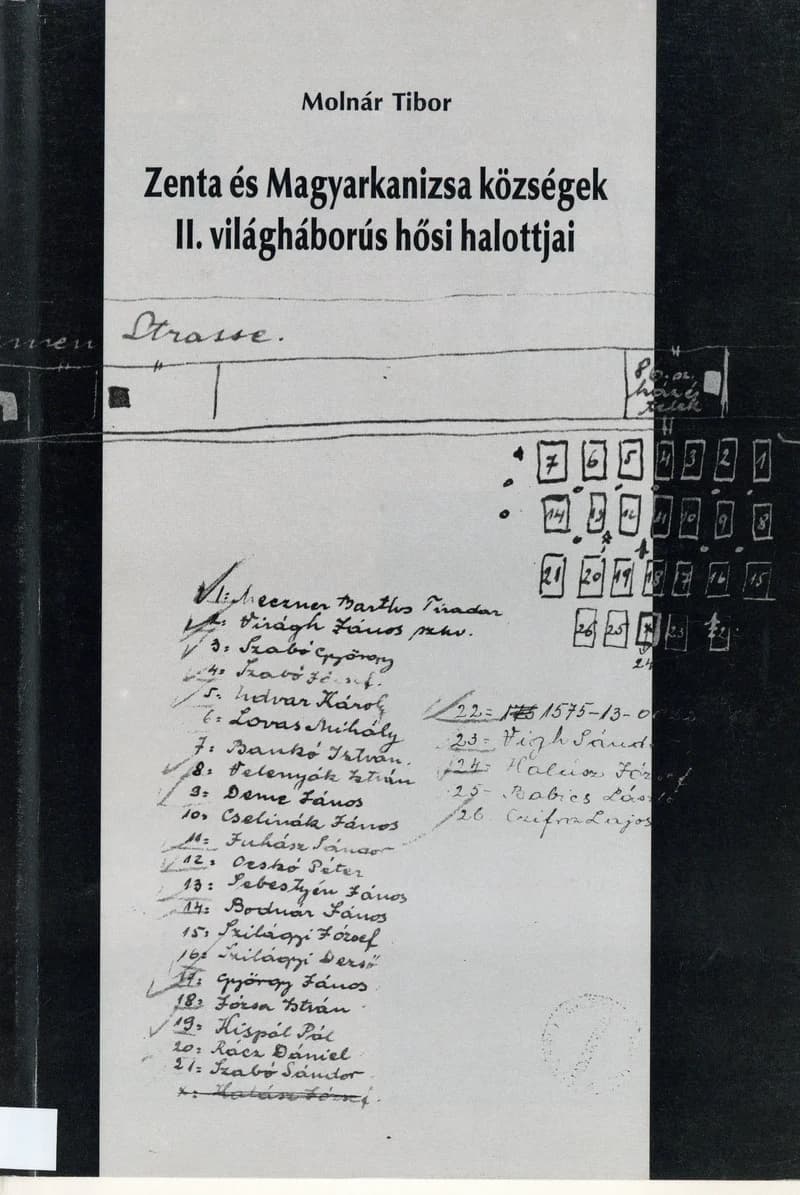 Molnár Tibor
Zenta és Magyarkanizsa községek
II. világháborús hősi halottjai
men Strasse.
86.sz.
ház és
telek
7 6 5 4 3 2 1
14 13 12 11 10 9 8
21 20 19 18 17 16 15
26 25 23 22
24
1: Meczner Barthos Tivadar
2: Virágh János szkv.
3: Szabó György
4: Szabó József.
5: Udvar Károly
6: Lovas Mihály
7: Bankó István.
8: Velenyák István
9: Deme János
10: Cselinák János
11: Juhász Sándor
12: Ocskó Péter
13: Sebestyén János
14: Bodnár János
15: Szilágyi József
16: Szilágyi Dezső
17: György János
18: Józsa István
19: Kispál Pál
20: Rácz Dániel
21: Szabó Sándor
x: Halász József.
22= 1575-13-0
23= Vigh Sánd
24= Halász József
25- Babics László
26. Czifra Lajos